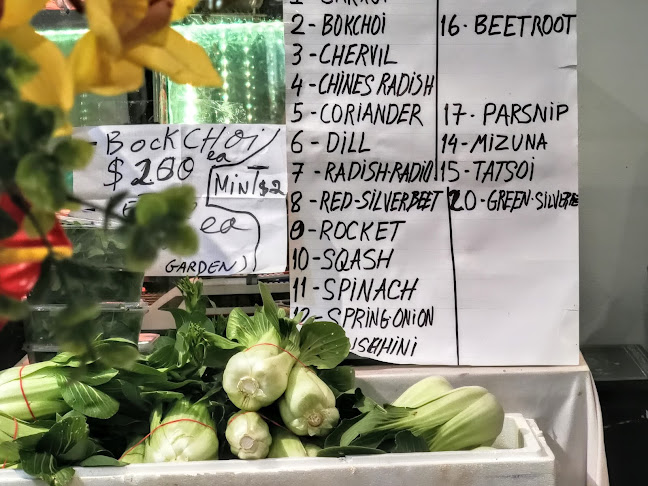 - BockCHOi
$ 200 ea
MinT $2
ea
GARDENS
1
2 - BOKCHOI
3 - CHERVIL
4 - CHINES RADISH
5 - CORIANDER
6 - DILL
7 - RADISH-RADIO
8 - RED-SILVERBEET
9 - ROCKET
10 - SQASH
11 - SPINACH
12 - SPRING-ONION
16 - BEETROOT
17 - PARSNIP
14 - MIZUNA
15 - TATSOI
20 - GREEN-SILVERBE